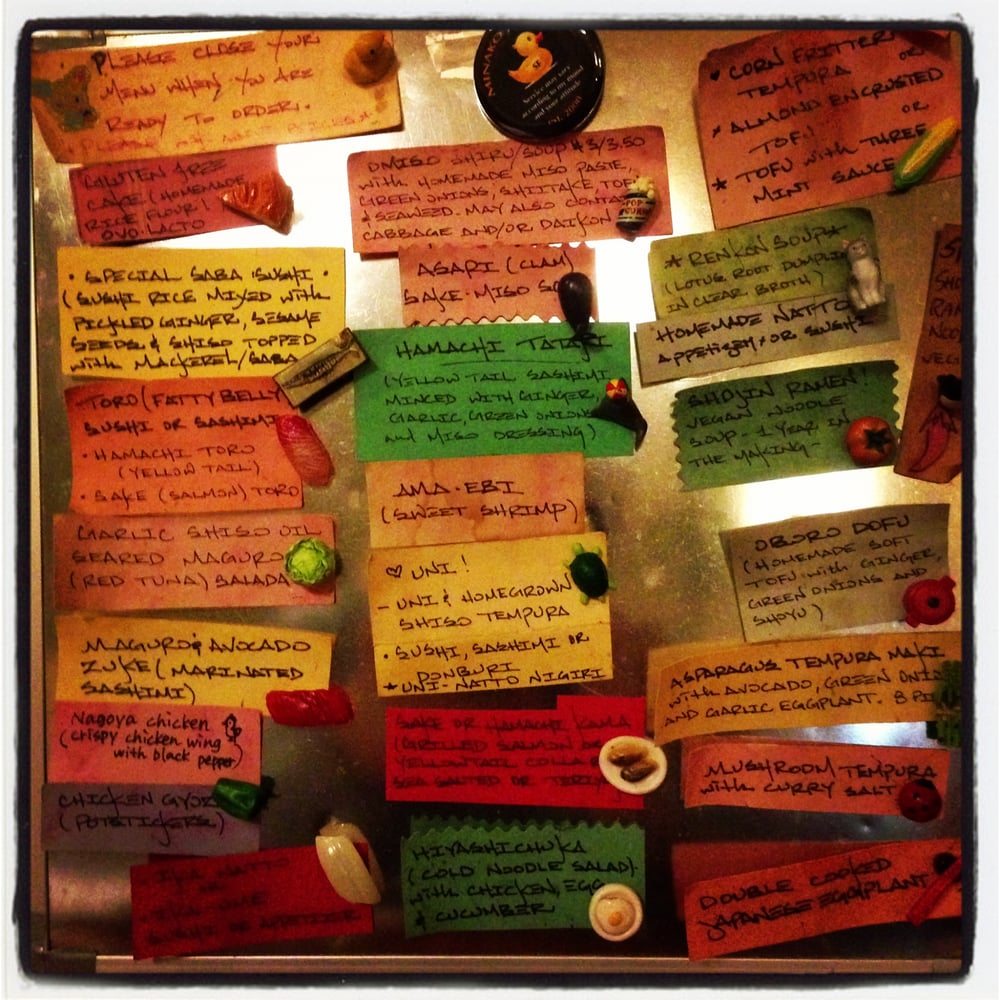 PLEASE CLOSE YOUR
MENU WHEN YOU ARE
READY TO ORDER.
GLUTEN FREE
CAKE (HOMEMADE
RICE FLOUR!
OVO-LACTO
• SPECIAL SABA SUSHI •
(SUSHI RICE MIXED WITH
PICKLED GINGER, SESAME
SEEDS & SHISO TOPPED
WITH MACKEREL/SABA
• TORO (FATTY BELLY)
SUSHI OR SASHIMI
• HAMACHI TORO
(YELLOW TAIL)
• SAKE (SALMON) TORO
GARLIC SHISO OIL
SEARED MAGURO
(RED TUNA) SALADA
MAGURO & AVOCADO
ZUKE (MARINATED
SASHIMI)
Nagoya chicken
(crispy chicken wing
with black pepper)
CHICKEN GYOZ
(POTSTICKERS)
IKA NATTO
OR
IKA
SUSHI OR APPETIZER
MINAKO
Service may vary
according to my mood
and your attitude
est. 2000
OMISO SHIRU/SOUP $3/3.50
WITH HOMEMADE MISO PASTE,
GREEN ONIONS, SHIITAKE, TOF
& SEAWEED. MAY ALSO CONTAI
CABBAGE AND/OR DAIKON
ASARI (CLAM)
SAKE-MISO SO
HAMACHI TATAKI
(YELLOW TAIL SASHIMI
MINCED WITH GINGER,
GARLIC, GREEN ONIONS
and MISO DRESSING)
AMA-EBI
(SWEET SHRIMP)
♡ UNI!
- UNI & HOMEGROWN
SHISO TEMPURA
• SUSHI, SASHIMI OR
DONBURI
★ UNI-NATTO NIGIRI
SAKE OR HAMACHI KAMA
(GRILLED SALMON OR
YELLOWTAIL COLLAR
SEA SALTED OR TERIY
HIYASHICHUKA
(COLD NOODLE SALAD)
WITH CHICKEN, EGG
& CUCUMBER
• CORN FRITTER OR
TEMPURA
★ ALMOND ENCRUSTED
TOFU OR
★ TOFU WITH THREE
MINT SAUCE
★ RENKON SOUP ★
(LOTUS ROOT DUMPLIN
IN CLEAR BROTH)
HOMEMADE NATTO
APPETIZER OR SUSHI
SHOJIN RAMEN!
VEGAN NOODLE
SOUP - 1 YEAR IN
THE MAKING -
OBORO DOFU
(HOMEMADE SOFT
TOFU WITH GINGER,
GREEN ONIONS AND
SHOYU)
ASPARAGUS TEMPURA MAKI
WITH AVOCADO, GREEN ONIO
AND GARLIC EGGPLANT. 8 PI
MUSHROOM TEMPURA
WITH CURRY SALT
DOUBLE COOKED
JAPANESE EGGPLANT